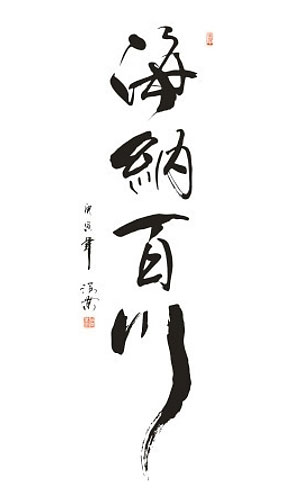 海納百川
庚寅年